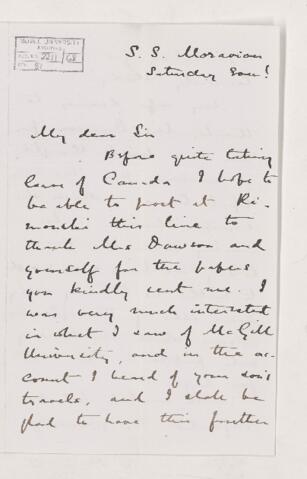 S. S. Moravian
Saturday Even!
My dear Sir
Before quite taking
leave of Canada I hope to
be able to post at Ri-
mouski this line to
thank Mrs Dawson and
yourself for the papers
you kindly sent me. I
was very much interested
in what I saw of McGill
University, and in the ac-
count I heard of your son's
travels, and I shall be
glad to have this further